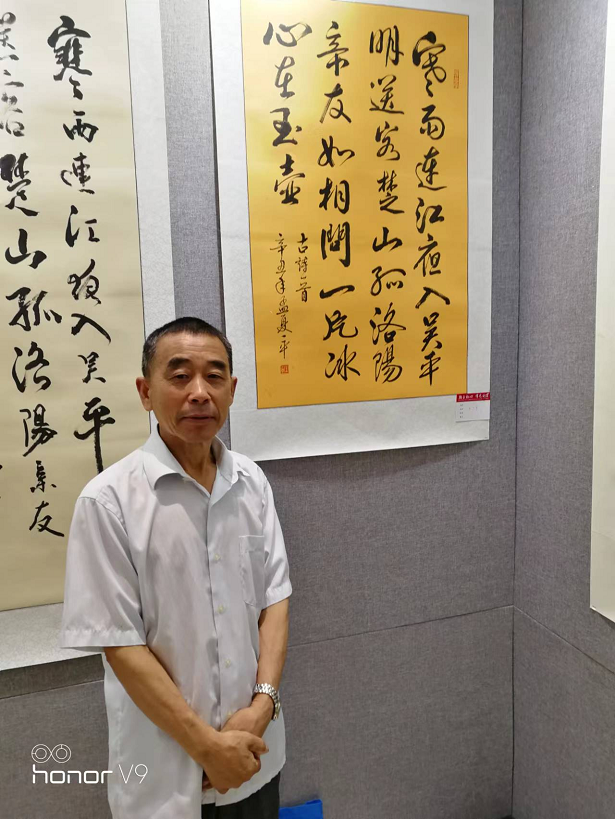 寒雨連江夜入吴平
明送客楚山孤洛陽
亲友如相問一片冰
心在玉壶
古詩一首
辛丑年孟夏一平
寒雨連江夜入吴平
客楚山孤洛陽亲友
honor V9